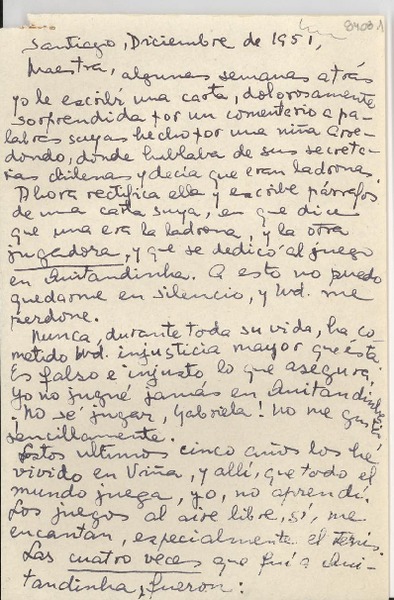 8408 1
Santiago, Diciembre de 1951,
Maestra, algunas semanas atrás
yo le escribí una carta, dolorosamente
sorprendida por un comentario a pa-
labras suyas hecho por una niña Arre-
dondo, donde hablaba de sus secreta-
rias chilenas y decía que eran ladronas.
Ahora rectifica ella y escribe párrafos
de una carta suya, en que dice
que una era la ladrona, y la otra
jugadora, y que se dedicó al juego
en Quitandinha. A esto no puedo
quedarme en silencio, y Ud. me
perdone.
Nunca, durante toda su vida, ha co-
metido Ud. injusticia mayor que ésta.
Es falso e injusto lo que asegura.
Yo no jugué jamás en Quitandinha.
¡No sé jugar, Gabriela! No me gusta,
sencillamente.
Estos ultimos cinco años los he
vivido en Viña, y allí, que todo el
mundo juega, yo, no aprendí.
Los juegos al aire libre, sí, me
encantan, especialmente el tenis.
Las cuatro veces que fuí a Qui-
tandinha, fueron: